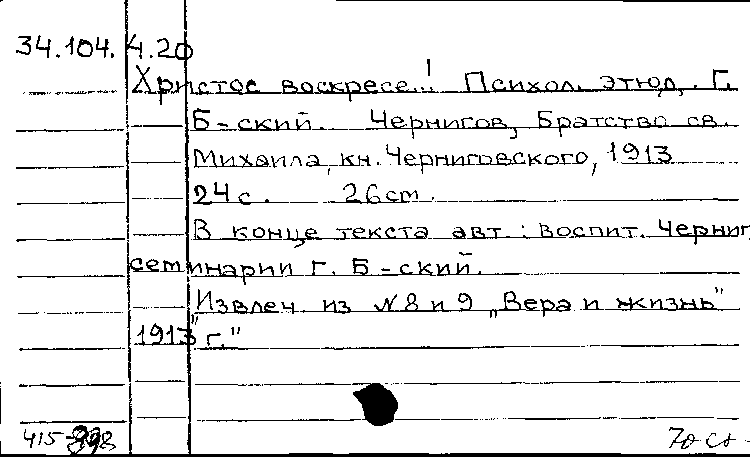 34.104.4.20
Христос воскресе..! Психол. этюд. Г.
Б-ский. Чернигов, Братство св.
Михаила, кн. Черниговского, 1913
24 с. 26 cm.
В конце текста авт.: воспит. Черниг.
семинарии г. Б-ский.
"Извлеч. из N 8 и 9 „Вера и жизнь"
1913 г."
415-